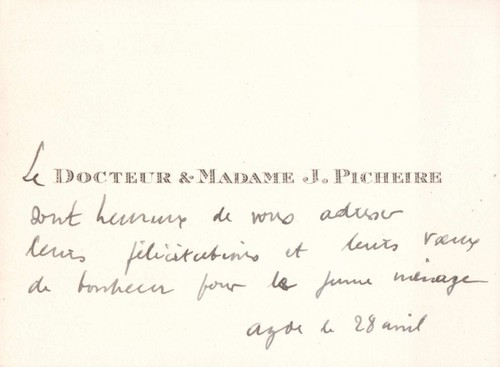 Le DOCTEUR & MADAME J. PICHEIRE
sont heureux de vous adresser
leurs félicitations et leurs vœux
de bonheur pour le jeune ménage
agde le 28 avril